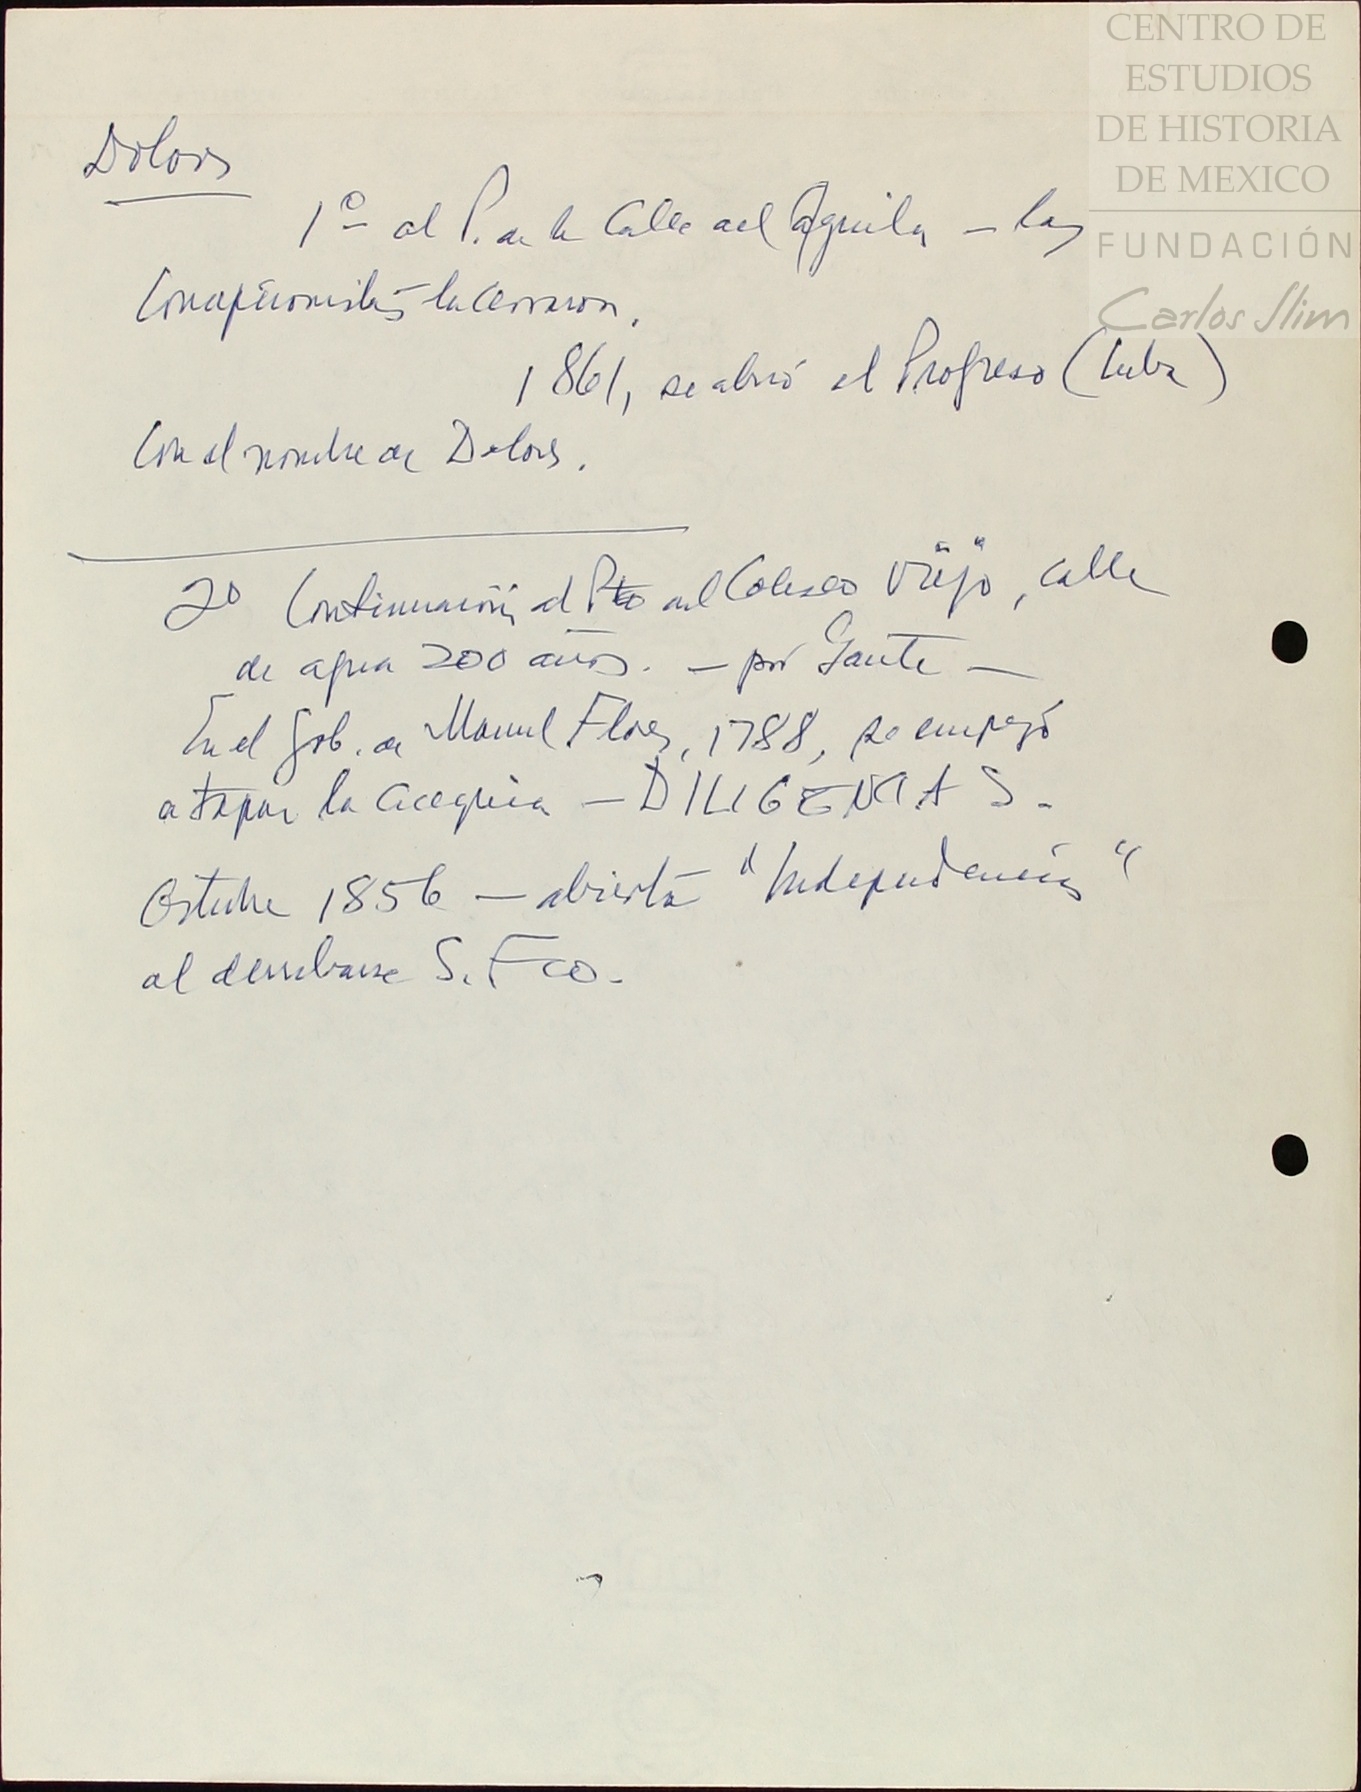 CENTRO DE
ESTUDIOS
DE HISTORIA
DE MEXICO
FUNDACIÓN
Carlos Slim
Dolores
1º al P. de la Calle del Aguila – las
Concepcionistas la cerraron.
1861, se abrió el Progreso (Cuba)
Con el nombre de Dolores.
2º Continuación, el Pte del Coliseo Viejo, calle
de agua 200 años. – por Gante –
En el Gob. de Manuel Flores, 1788, se empezó
a tapar la acequia – DILIGENCIAS.
Octubre 1856 – abierta "Independencia"
al derrumbarse S. Fco.